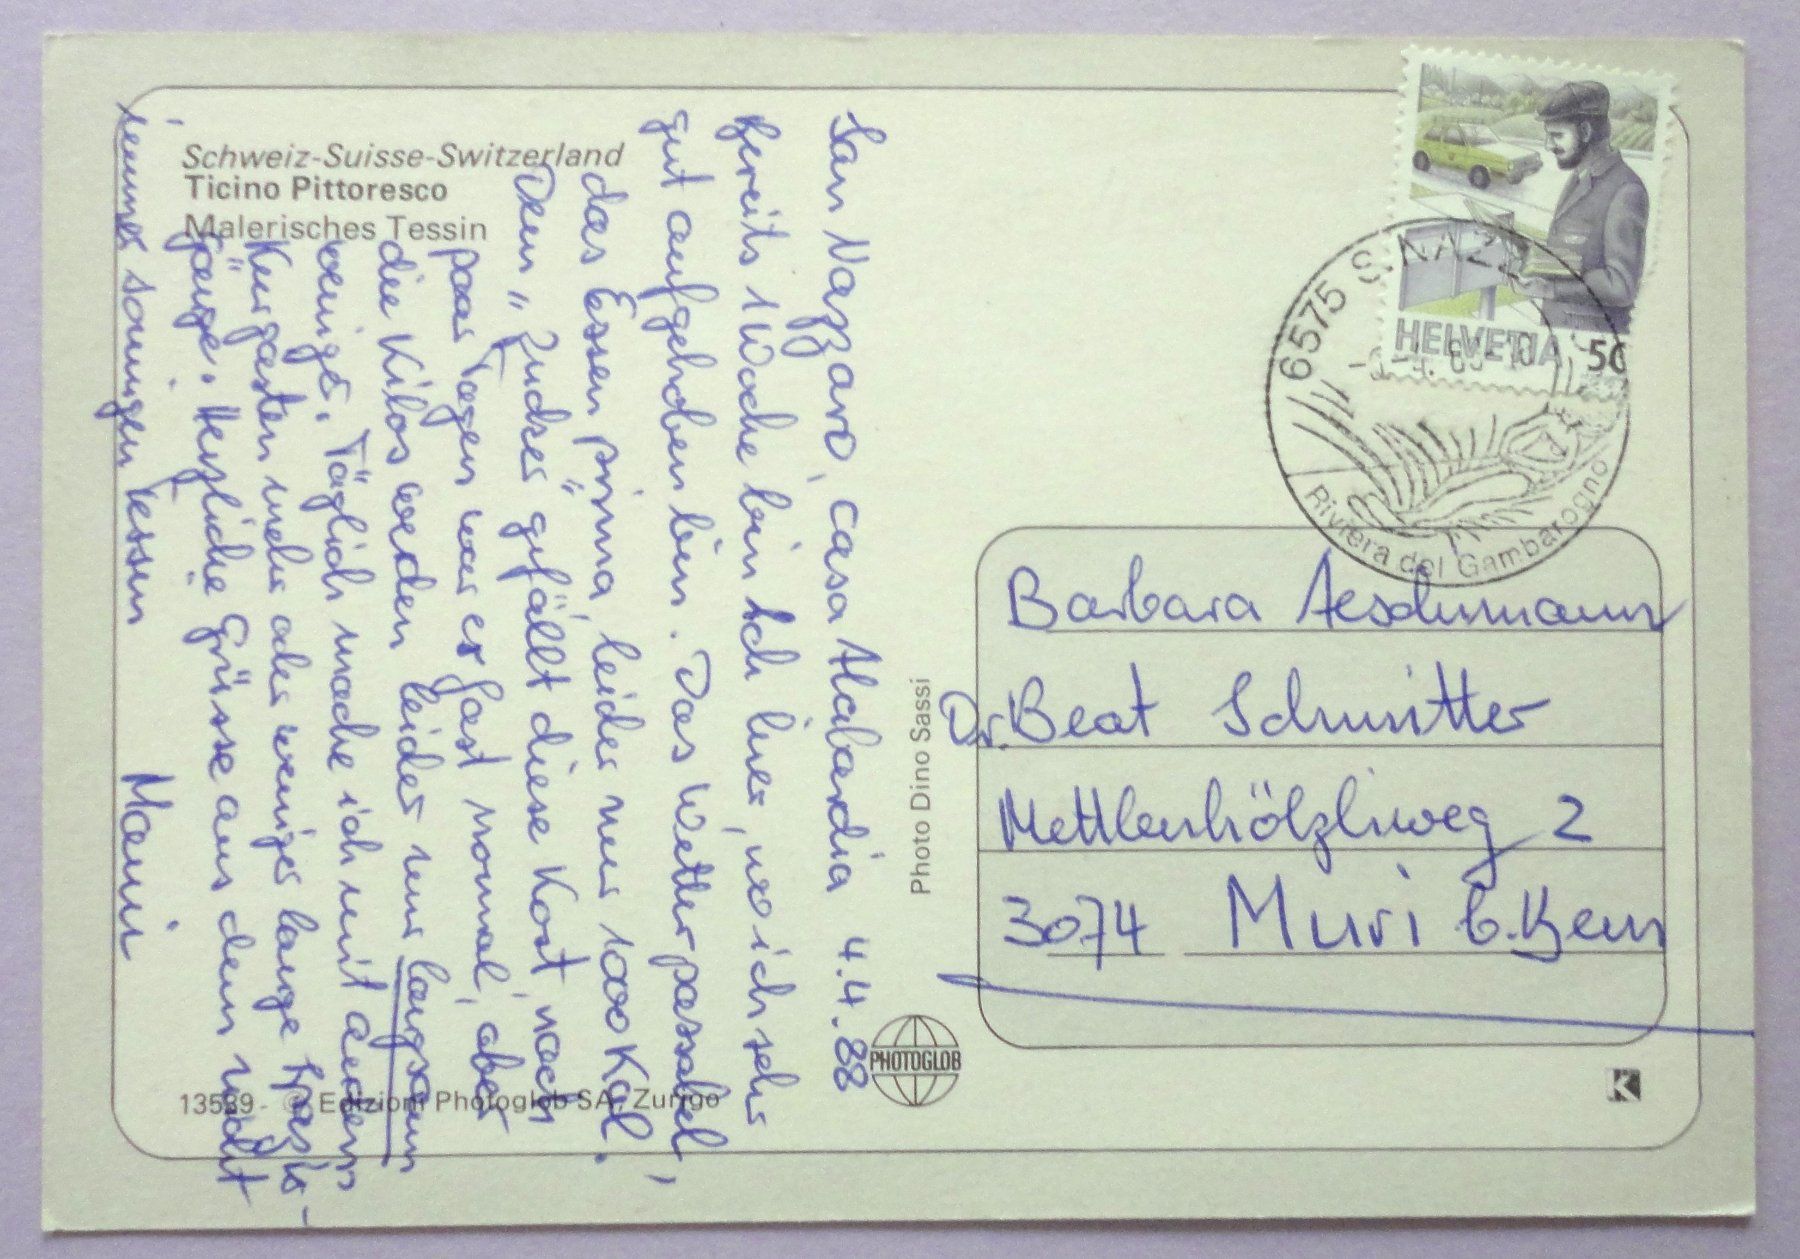 Schweiz-Suisse-Switzerland
Ticino Pittoresco
Malerisches Tessin
San Nazzaro, Casa Alabardia 4.4.88
Bereits 1 Woche bin ich hier, wo ich sehr
gut aufgehoben bin. Das Wetter passabel,
das Essen prima, leider nur 1000 Kal.
Dem "Zucker" gefällt diese Kost, nach
paar Tagen war er fast normal, aber
die Kilos werden leider nur langsam
weniger. Täglich mache ich mit andern
Kurgästen mehr oder weniger lange Spazier-
gänge. Herzliche Grüsse aus dem nicht
immer sonnigen Tessin
Mami
13589 - © Edizioni Photoglob SA, Zurigo
Photo Dino Sassi
PHOTOGLOB
HELVETIA 50
6575 S. NAZZ
Riviera del Gambarogno
Barbara Aeschimann
Dr. Beat Schmitter
Mettlenhölzliweg 2
3074 Muri b. Bern
K